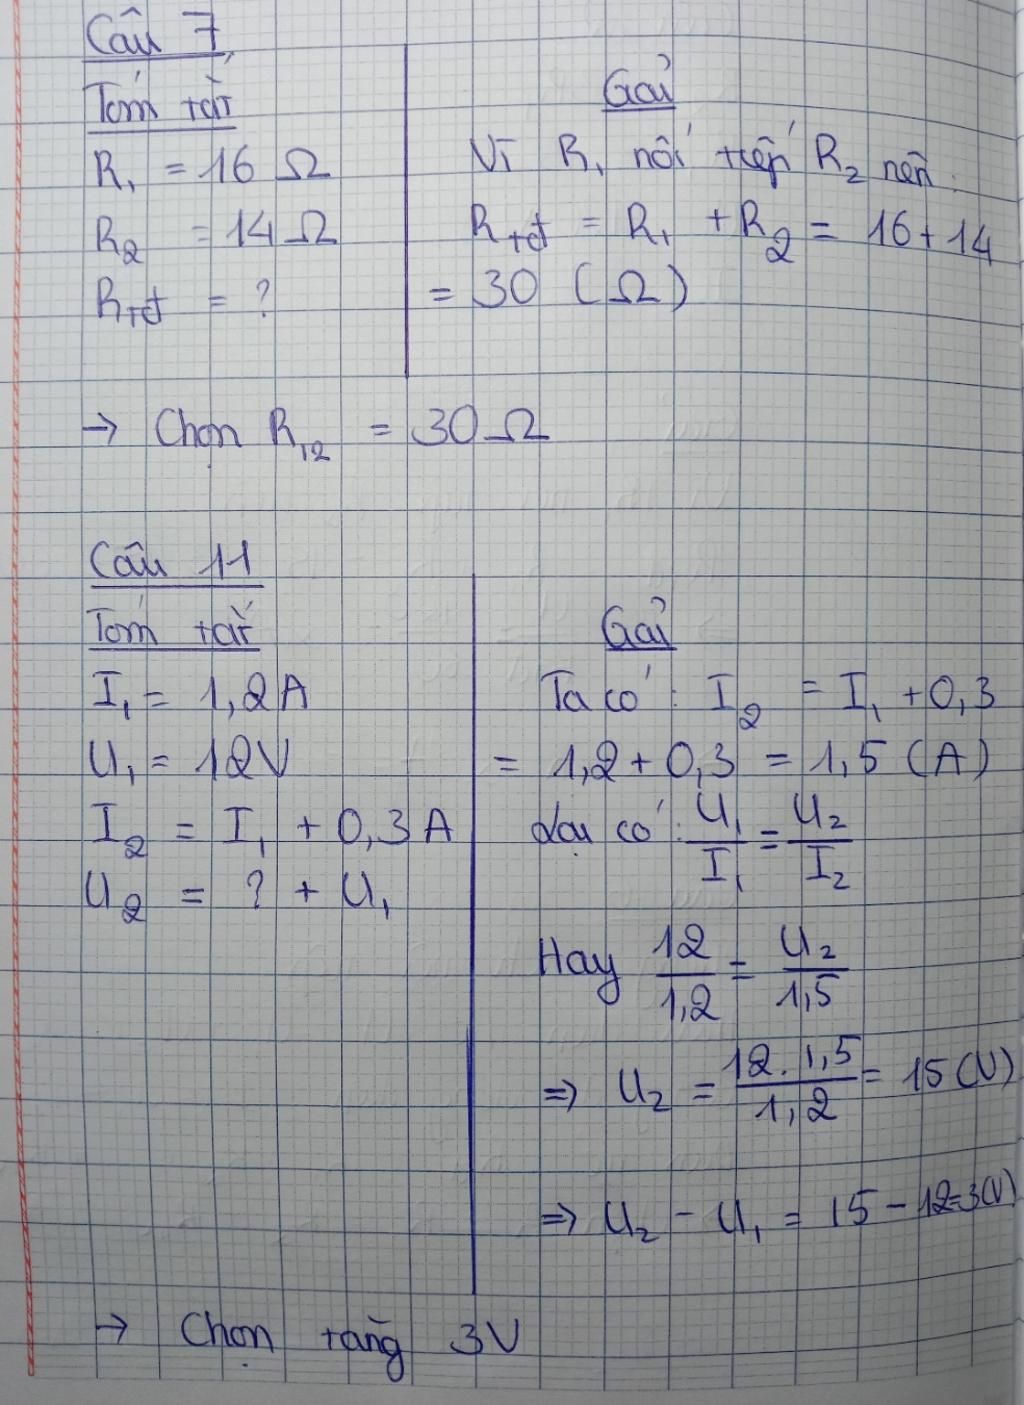 Câu 7
Tóm tắt
R₁ = 16 Ω
R₂ = 14 Ω
Rtđ = ?
Giải
Vì R₁ nối tiếp R₂ nên:
Rtđ = R₁ + R₂ = 16 + 14
= 30 (Ω)
→ Chọn R₁₂ = 30 Ω
Câu 11
Tóm tắt
I₁ = 1,2A
U₁ = 12V
I₂ = I₁ + 0,3A
U₂ = ? + U₁
Giải
Ta có: I₂ = I₁ + 0,3
= 1,2 + 0,3 = 1,5 (A)
Lại có: U₁/I₁ = U₂/I₂
Hay 12/1,2 = U₂/1,5
⇒ U₂ = 12.1,5/1,2 = 15 (V)
⇒ U₂ - U₁ = 15 - 12 = 3(V)
→ Chọn tăng 3V